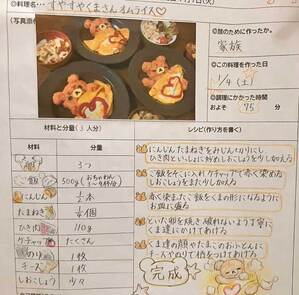 料理名… すやすやくまさんオムライス♡
(火)
誰のために作ったか。
家族
この料理を作った日
1/4 (土)
調理にかかった時間
およそ 75 分
材料と分量(3人分)
レシピ(作り方を書く)
材料
分量
卵
3つ
ご飯
500g(おちゃわん3〜4杯分)
にんじん
1/2本
たまねぎ
1/4個
ひき肉
110g
ケチャップ
たくさん
のり
1枚
チーズ
1枚
しおこしょう
少々
にんじん たまねぎをみじんぎりにし
ひき肉といっしょに炒めしおこしょうを少し加える
ご飯をそこに入れケチャップで赤く染める
しおこしょうをまた少し加える
赤く染またご飯をくまの形になるように
お皿に盛る
といた卵を焼き破れないよう丁寧に
くま達にかけてあげる
くま達の顔やたまごのおふとんに
チーズやのりで柄をつけてあげる
完成